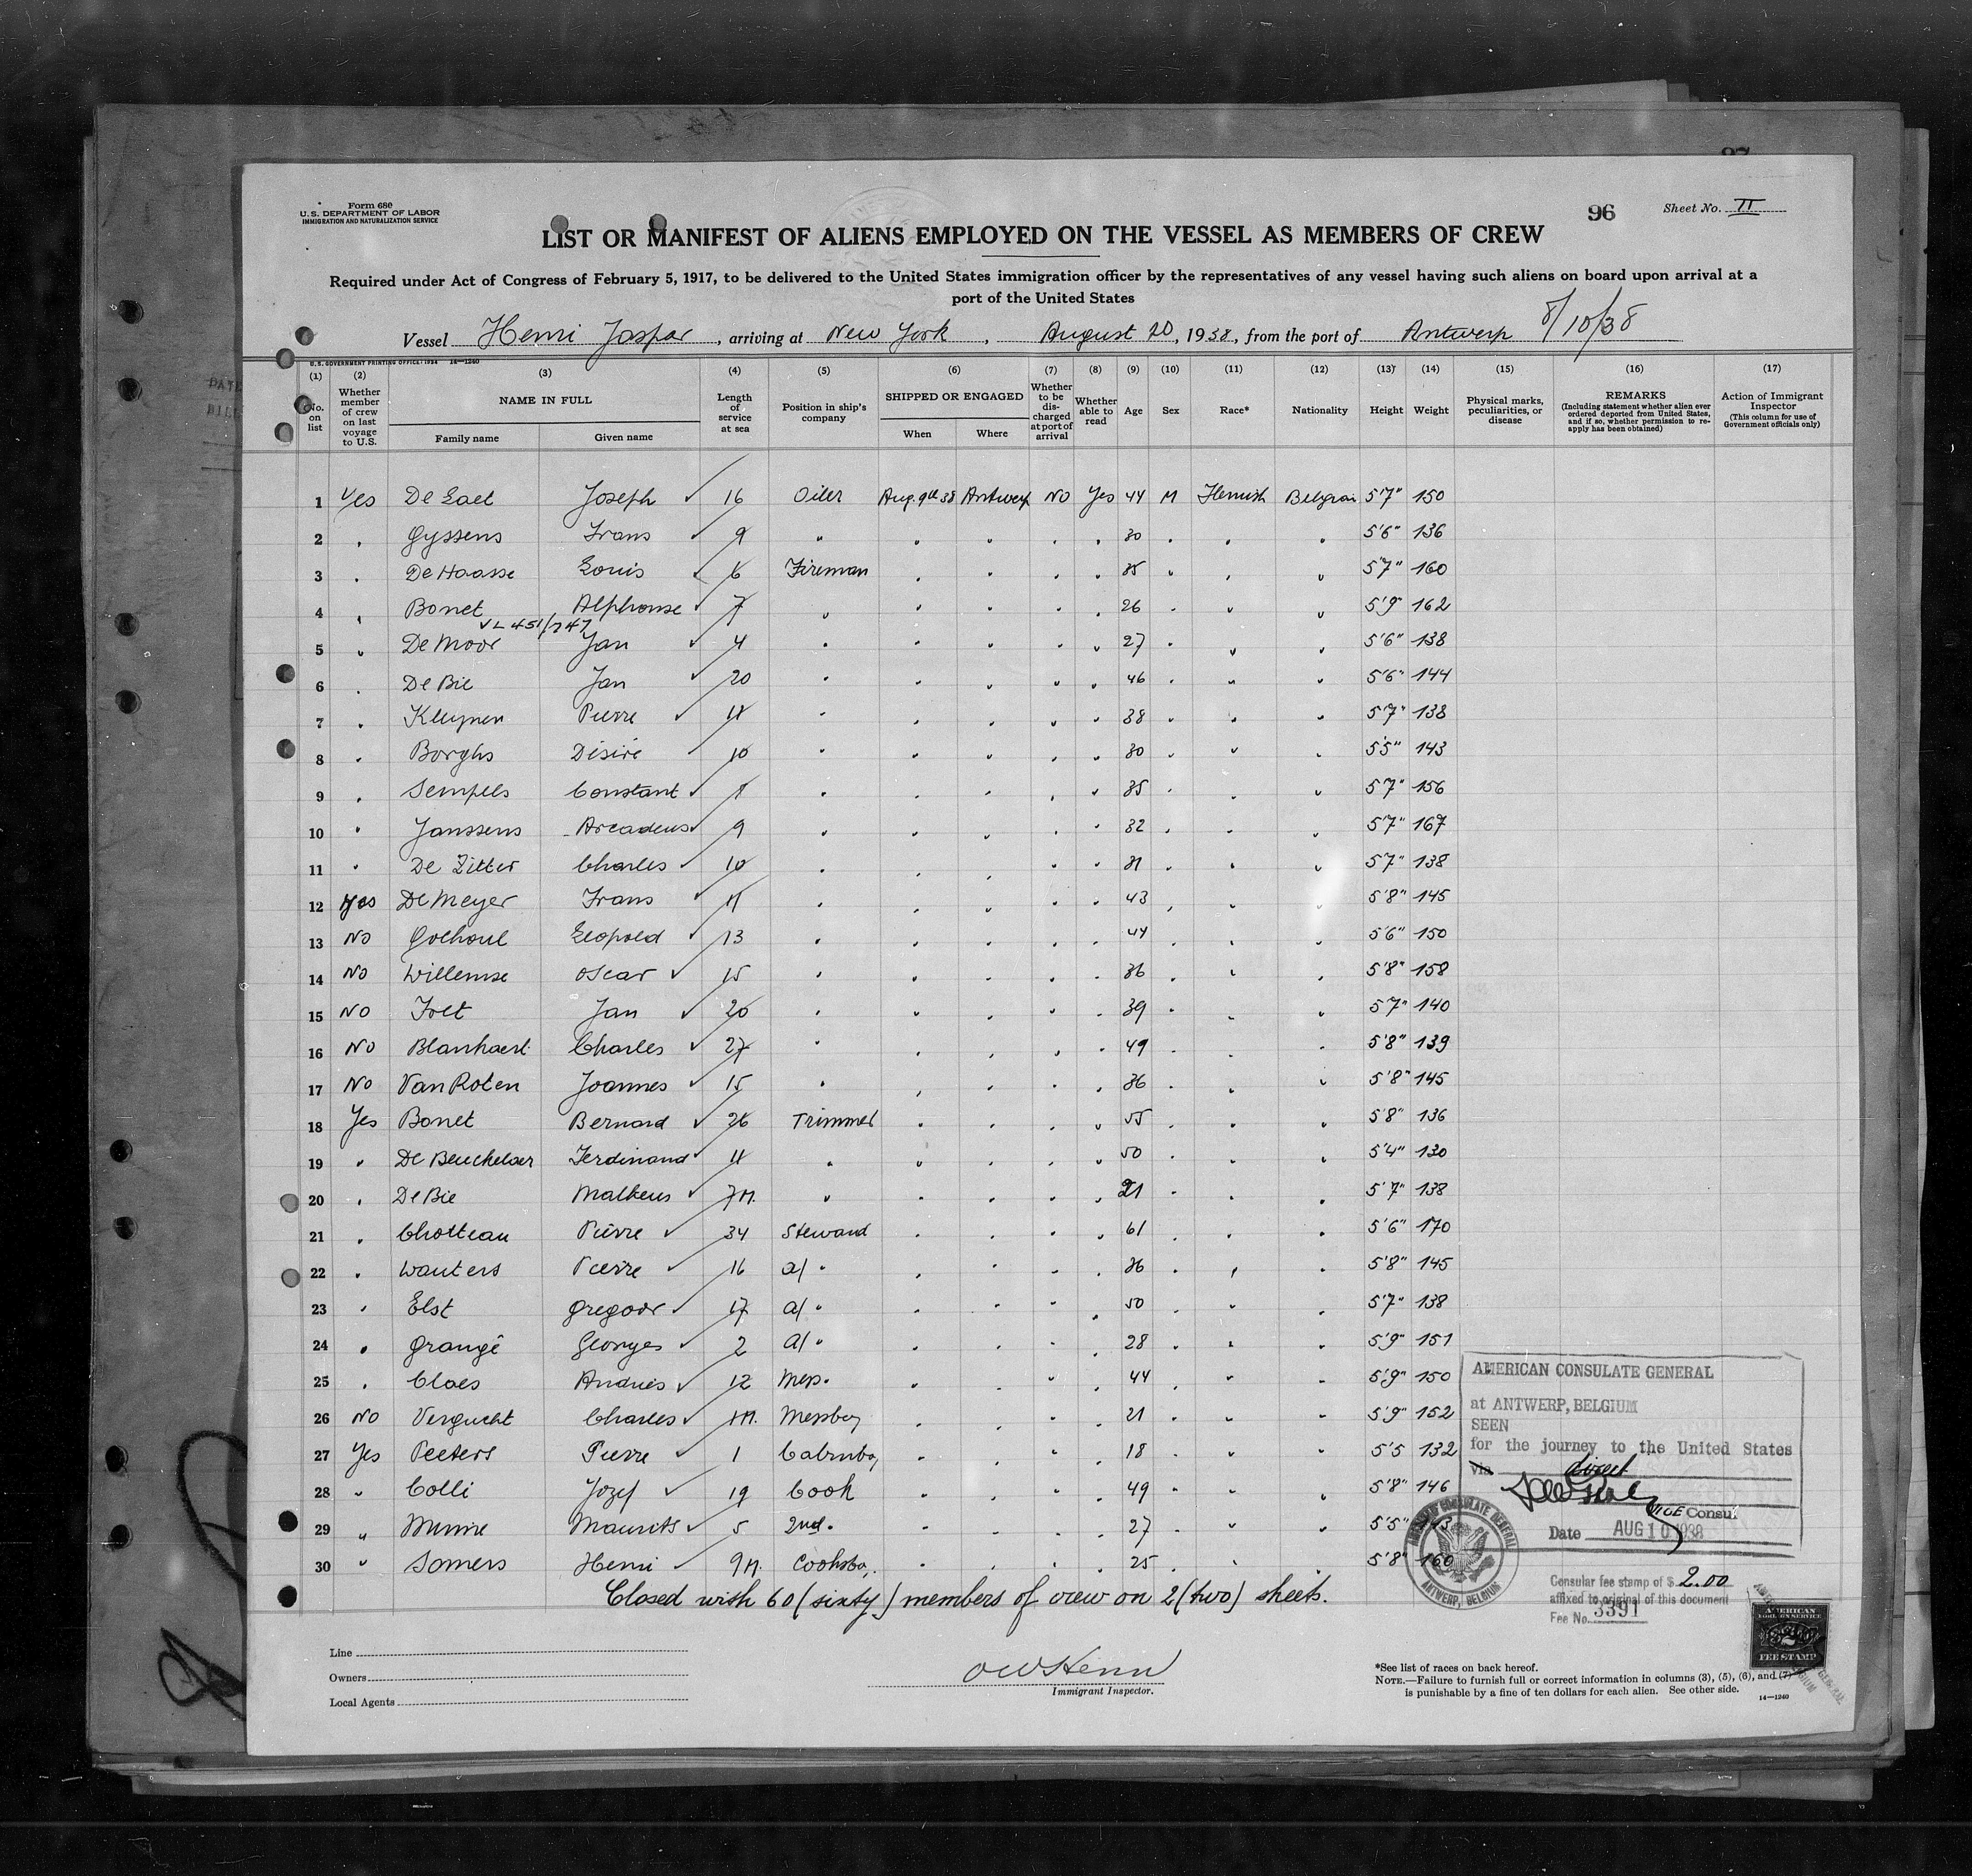 Form 680
U.S. DEPARTMENT OF LABOR
IMMIGRATION AND NATURALIZATION SERVICE
96
Sheet No. II
LIST OR MANIFEST OF ALIENS EMPLOYED ON THE VESSEL AS MEMBERS OF CREW
Required under Act of Congress of February 5, 1917, to be delivered to the United States immigration officer by the representatives of any vessel having such aliens on board upon arrival at a
port of the United States
8/10/38
Vessel Henri Jaspar, arriving at New York, August 20, 1938, from the port of Antwerp
U.S. GOVERNMENT PRINTING OFFICE: 1934 14—1240
(1) (2) (3) (4) (5) (6) (7) (8) (9) (10) (11) (12) (13) (14) (15) (16) (17)
No. on list
Whether member of crew on last voyage to U.S.
NAME IN FULL
Family name Given name
Length of service at sea
Position in ship's company
SHIPPED OR ENGAGED
When Where
Whether to be discharged at port of arrival
Whether able to read
Age
Sex
Race*
Nationality
Height
Weight
Physical marks, peculiarities, or disease
REMARKS
(Including statement whether alien ever ordered deported from United States, and if so, whether permission to reapply has been obtained)
Action of Immigrant Inspector
(This column for use of Government officials only)
1 Yes De Lael Joseph ✓ 16 Oiler Aug. 9th 38 Antwerp No Yes 44 M Flemish Belgian 5'7" 150
2 " Gyssens Frans ✓ 9 " " " " " 30 " " " 5'6" 136
3 " De Haasse Louis ✓ 6 Fireman " " " " 35 " " " 5'7" 160
4 " Bonet Alphonse ✓ 7 " " " " " 26 " " " 5'9" 162
5 " De Moor Jan ✓ 4 " " " " " 27 " " " 5'6" 138
6 " De Bie Jan ✓ 20 " " " " " 46 " " " 5'6" 144
7 " Kleynen Pierre ✓ 11 " " " " " 38 " " " 5'7" 138
8 " Borghs Désiré ✓ 10 " " " " " 30 " " " 5'5" 143
9 " Sempels Constant ✓ " " " " " 35 " " " 5'7" 156
10 " Janssens Arcadeus ✓ 9 " " " " " 32 " " " 5'7" 167
11 " De Zitter Charles ✓ 10 " " " " " 31 " " " 5'7" 138
12 Yes De Meyer Frans ✓ 11 " " " " " 43 " " " 5'8" 145
13 No Leopold ✓ 13 " " " " " 44 " " " 5'6" 150
14 No Willemse Oscar ✓ 15 " " " " " 36 " " " 5'8" 158
15 No Jan ✓ 20 " " " " " 39 " " " 5'7" 140
16 No Blanhaert Charles ✓ 27 " " " " " 49 " " " 5'8" 139
17 No Van Roten Joannes ✓ 15 " " " " " 36 " " " 5'8" 145
18 Yes Bonet Bernard ✓ 26 Trimmer " " " " 55 " " " 5'8" 136
19 " De Beuckelaer Ferdinand ✓ 11 " " " " " 50 " " " 5'4" 130
20 " De Bie Matheus ✓ 7M. " " " " " 21 " " " 5'7" 138
21 " Chotteau Pierre ✓ 34 Steward " " " " 61 " " " 5'6" 170
22 " Wauters Pierre ✓ 16 a/ " " " " " 36 " " " 5'8" 145
23 " Elst Gregoor ✓ 17 a/ " " " " " 50 " " " 5'7" 138
24 " Grangé Georges ✓ 2 a/ " " " " " 28 " " " 5'9" 151
25 " Claes Andries ✓ 12 Mess. " " " " 44 " " " 5'9" 150
26 No Vergucht Charles ✓ Messboy " " " " 21 " " " 5'9" 152
27 Yes Peeters Pierre ✓ 1 Cabinboy " " " " 18 " " " 5'5 132
28 " Colli Jozef ✓ 19 Cook " " " " 49 " " " 5'8" 146
29 " Maurits ✓ 5 2nd " " " " " 27 " " " 5'5"
30 " Somers Henri ✓ 9M. Cooksboy " " " " 25 " " " 5'8" 160
Closed with 60 (sixty) members of crew on 2 (two) sheets.
AMERICAN CONSULATE GENERAL
at ANTWERP, BELGIUM
SEEN
for the journey to the United States
via direct
VICE Consul
Date AUG 10 1938
AMERICAN CONSULATE GENERAL
ANTWERP, BELGIUM
Consular fee stamp of $ 2.00
affixed to original of this document
Fee No. 3391
AMERICAN
FOREIGN SERVICE
FEE STAMP
Line
Owners
Local Agents
Immigrant Inspector.
*See list of races on back hereof.
NOTE.—Failure to furnish full or correct information in columns (3), (5), (6), and (7)
is punishable by a fine of ten dollars for each alien. See other side.
14—1240